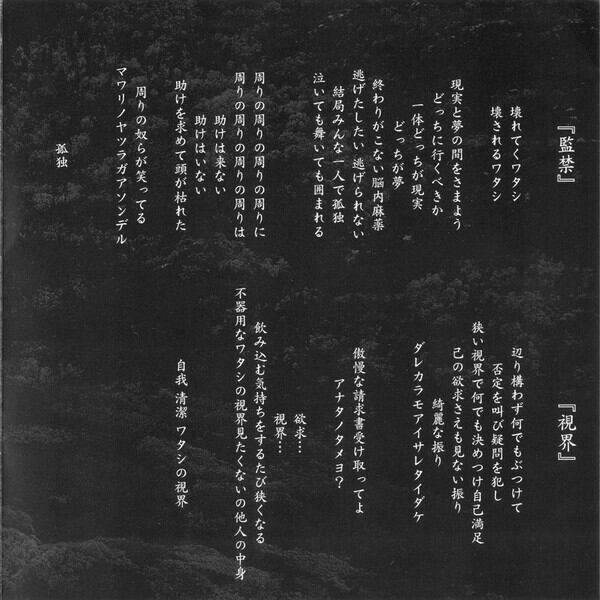 『監禁』
壊れてくワタシ
壊されるワタシ
現実と夢の間をさまよう
どっちに行くべきか
一体どっちが現実
どっちが夢
終わりがこない脳内麻薬
逃げたしたい 逃げられない
結局みんな一人で孤独
泣いても舞いても囲まれる
周りの周りの周りの周りに
周りの周りの周りの周りは
助けは来ない
助けはいない
助けを求めて頭が枯れた
周りの奴らが笑ってる
マワリノヤツラガアソンデル
孤独
『視界』
辺り構わず何でもぶつけて
否定を叫び疑問を犯し
狭い視界で何でも決めつけ自己満足
己の欲求さえも見ない振り
綺麗な振り
ダレカラモアイサレタイダケ
傲慢な請求書受け取ってよ
アナタノタメヨ？
欲求…
視界…
飲み込む気持ちをするたび狭くなる
不器用なワタシの視界見たくないの他人の中身
自我 清潔 ワタシの視界